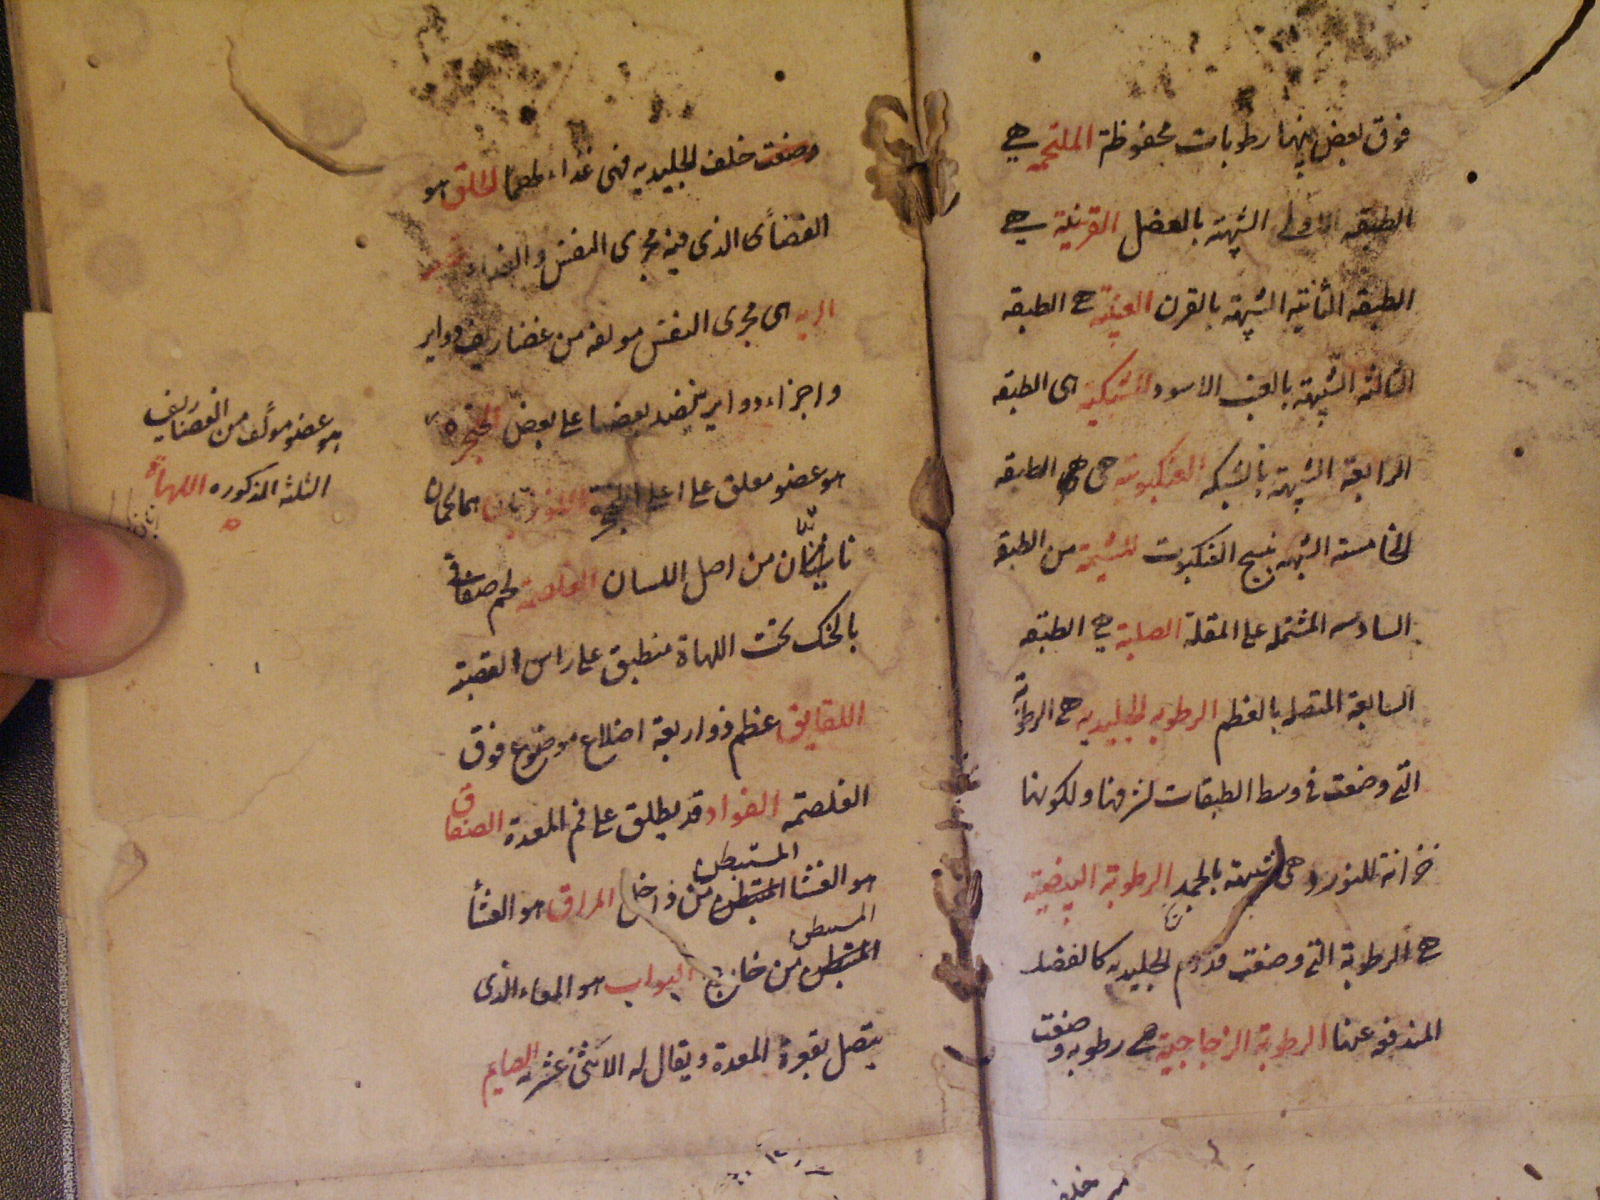 فوق بعض بينها رطوبات محفوظة الملتحمه هي
الطبقه الاولى الشبيهة بالعضل القرنية هي
الطبقه الثانية الشبيهة بالقرن العنبية هي الطبقه
الثالثة الشبيهة بالعنب الاسود الشبكية اى الطبقه
الرابعة الشبيهة بالشبكه العنكبوتية هي الطبقه
الخامسة الشبيهة بنسج العنكبوت المشيمة من الطبقه
السادسه المشتمل على المقلة الصلبة هي الطبقه
السابعة المتصلة بالعظم الرطوبه الجليديه هي الرطوبة
التي وضعت في وسط الطبقات لشرفها ولكونها
خزانة للنور وهي شبيهة بالجمد الرطوبة البيضية
هي الرطوبة التي وضعت قدام الجليديه كالفضلة
المندفعه عنها الرطوبة الزجاجية هي رطوبه وضعت
وضعت خلف الجليديه فهى غداء لها الحلق هو
الفضاى الذى فيه مجرى النفس والغداء
الريه اى مجرى النفس مولفه من غضاريف دواير
واجزاء دواير ينضد بعضها على بعض الحنجره
هو عضو معلق على اعلى الحنجرة اللوزتان هما لحمان
نابتان من اصل اللسان الغلصمه لحم صفاقى
بالحنك تحت اللهاة منطبق على راس القصبة
اللقايق عظم ذو اربعة اضلاع موضوع فوق
الغلصمه الفواد قد يطلق على فم المعدة الصفاق
المستبطن
هو الغشا المتبطن من داخل المراق هو الغشأ
المستبطن
المتبطن من خارج البواب هو المعاء الذى
يتصل بقعرة المعدة ويقال له الاثنى عشر الصايم
هو عضو مولف من الغضاريف
الثلثة المذكوره اللهاة